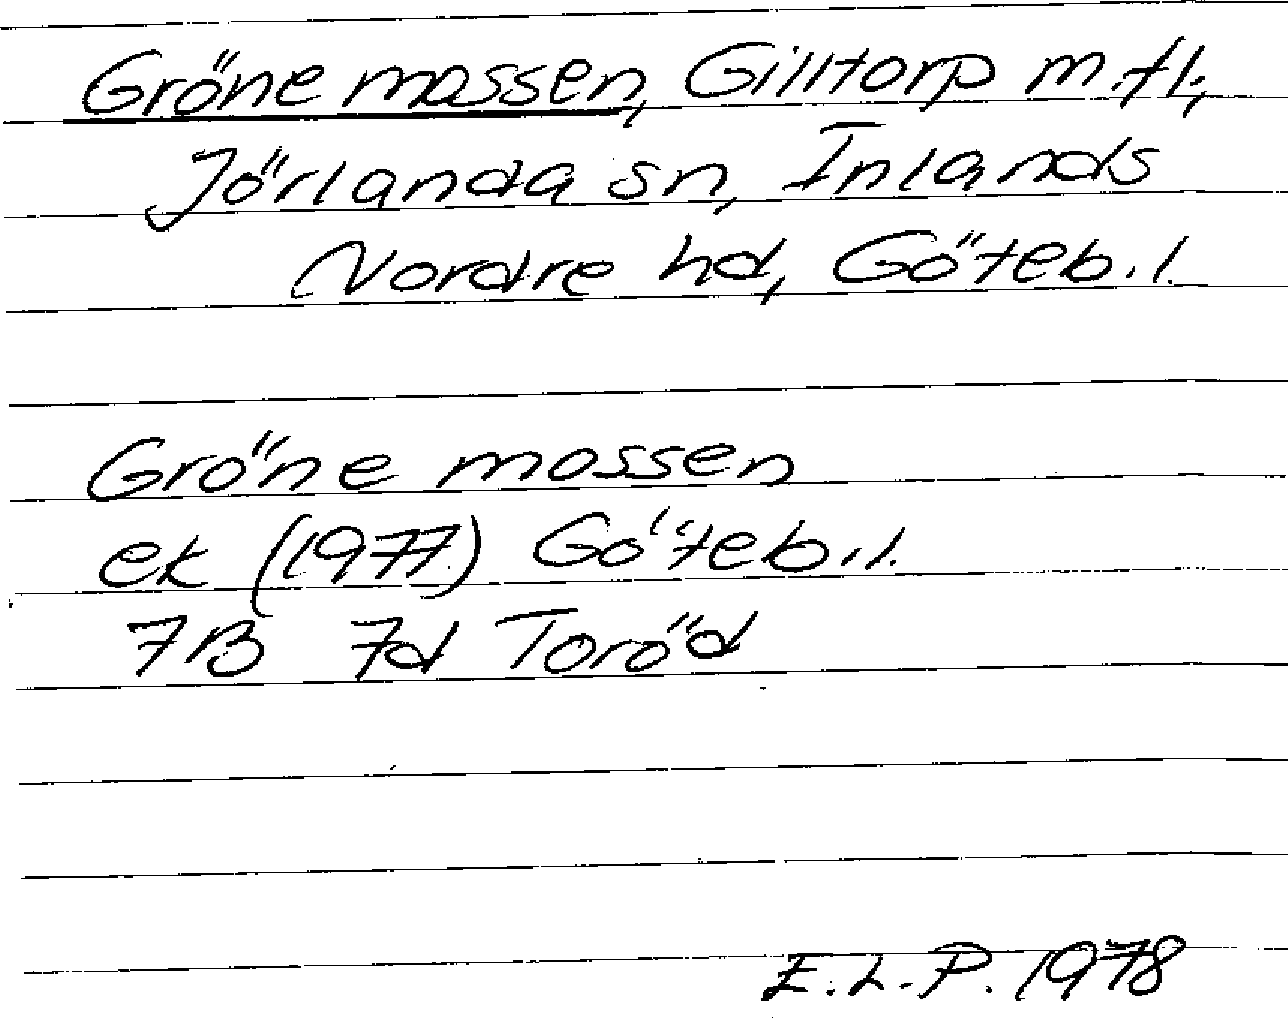 Gröne mossen, Gilltorp m.fl.,
Jörlanda sn, Inlands
Nordre hd, Göteb.l.
Gröne mossen
ek (1977) Göteb.l.
7B 7d Toröd
E.L.P. 1978